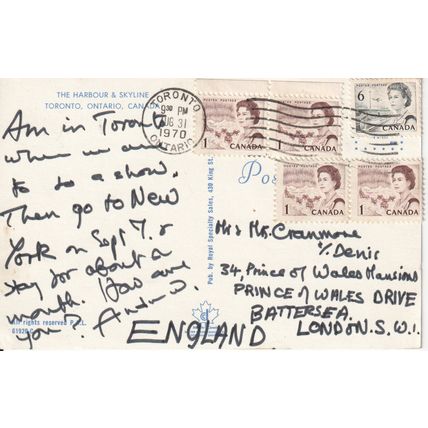 THE HARBOUR & SKYLINE
TORONTO, ONTARIO, CANADA
TORONTO
9 30 PM
AUG 31
1970
ONTARIO
1 CANADA
1 CANADA
6 CANADA
1 CANADA
1 CANADA
POSTES POSTAGE
Am in Toronto
when we are
to do a show.
Then go to New
York on Sept 7. &
stay for about a
month. How are
you? Andrew.
All rights reserved
Pub. by Royal Specialty Sales, 430 King St.
Pos
Mrs Mr. Cranmore
% Denis
34, Prince of Wales Mansions
PRINCE of WALES DRIVE
BATTERSEA.
LONDON. S.W.1.
ENGLAND